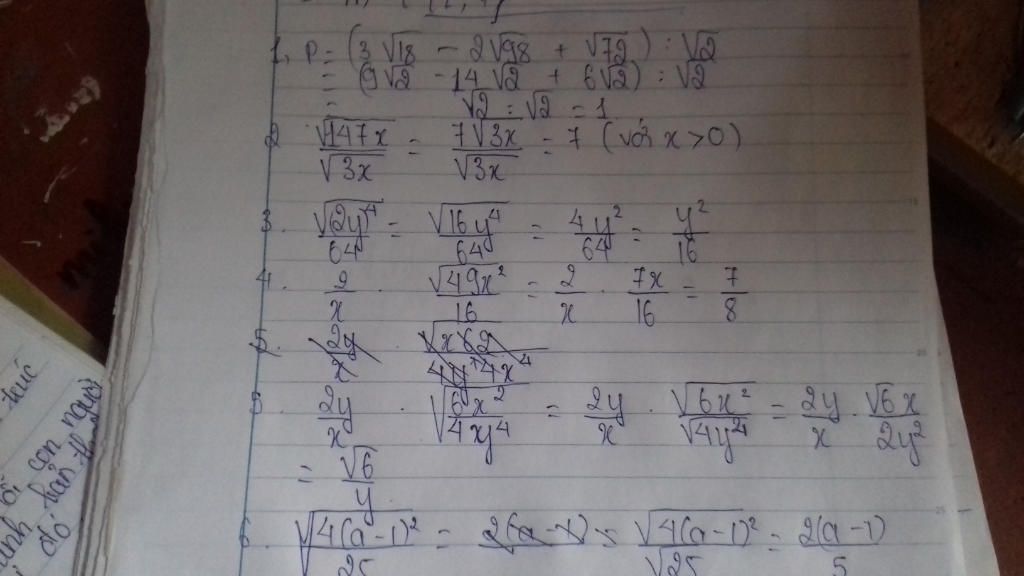 1, P = (3√18 - 2√98 + √72) : √2
= (9√2 - 14√2 + 6√2) : √2
= √2 : √2 = 1
2 √147x / √3x = 7√3x / √3x = 7 (với x > 0)
3. √(2y)⁴ / 64 = √16y⁴ / 64 = 4y² / 64 = y² / 16
4. 2/x . √49x² / 16 = 2/x . 7x/16 = 7/8
5. 2y/x . √x62 / 4y⁴4x⁴
5. 2y/x . √(6x² / 4xy⁴) = 2y/x . √6x² / √4y⁴ = 2y/x . √6x / 2y²
= √6 / y
6. √(4(a-1)² / 25) = 2(a-1) = √4(a-1)² / √25 = 2(a-1) / 5
thức
con người
do